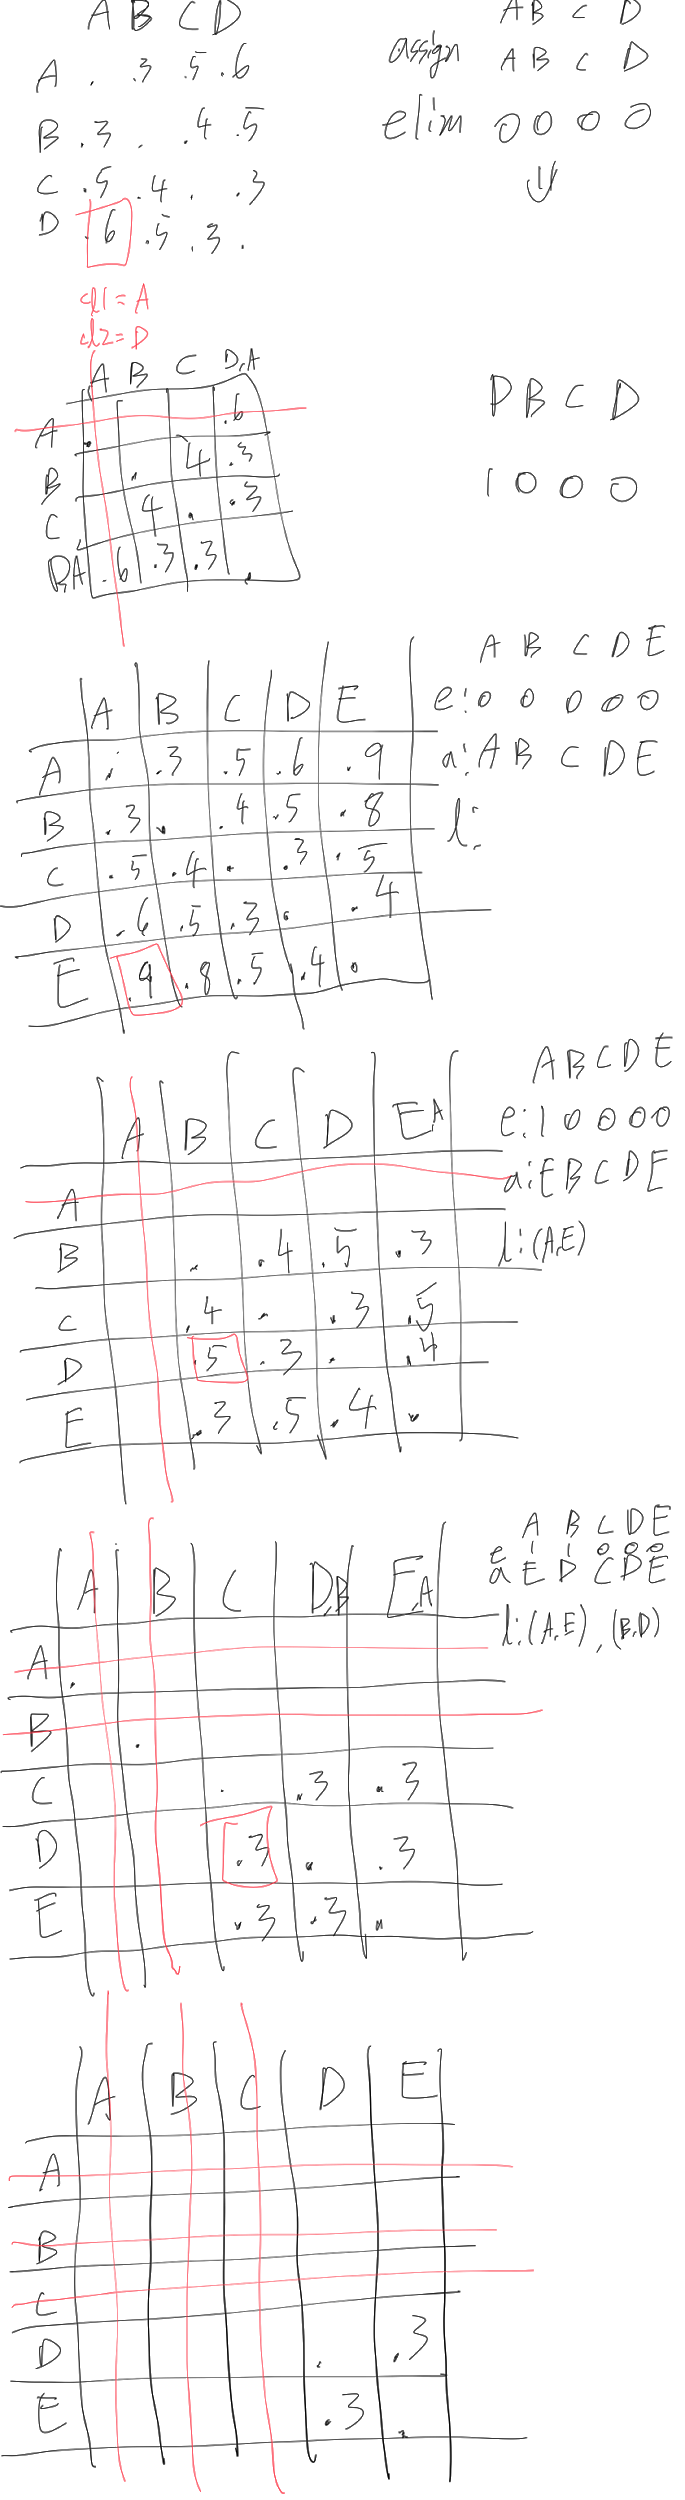 A B C D
A . .3 .5 .6
B .3 . .4 .5
C .5 .4 . .3
D .6 .5 .3 .
A B C D
assign A B C D
elim 0 0 0 0
cl1 = A
cl2 = D
A B C D,A
A . .6
B . .4 .3
C .4 . .3
D,A .6 .3 .3 .
D B C D
1 0 0 0
A B C D E
A . .3 .5 .6 .9
B .3 . .4 .5 .8
C .5 .4 . .3 .5
D .6 .5 .3 . .4
E .9 .8 .5 .4 .
A B C D E
e: 0 0 0 0 0
a: A B C D E
l:
A B C D E,A
A
B . .4 .5 .3
C .4 . .3 .5
D .5 .3 . .4
E .3 .5 .4 .
A B C D E
e: 1 0 0 0 0
a: E B C D E
l: (A,E)
A B C D,B E,A
A .
B .
C . .3 .3
D .3 . .3
E .3 .3 .
A B C D E
e 1 1 0 0 0
a E D C D E
l: (A,E), (B,D)
A B C D E
A
B
C
D . .3
E .3 .